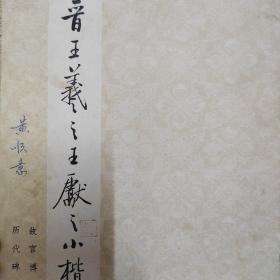 晋王羲之王献之小楷
故宫博
历代碑